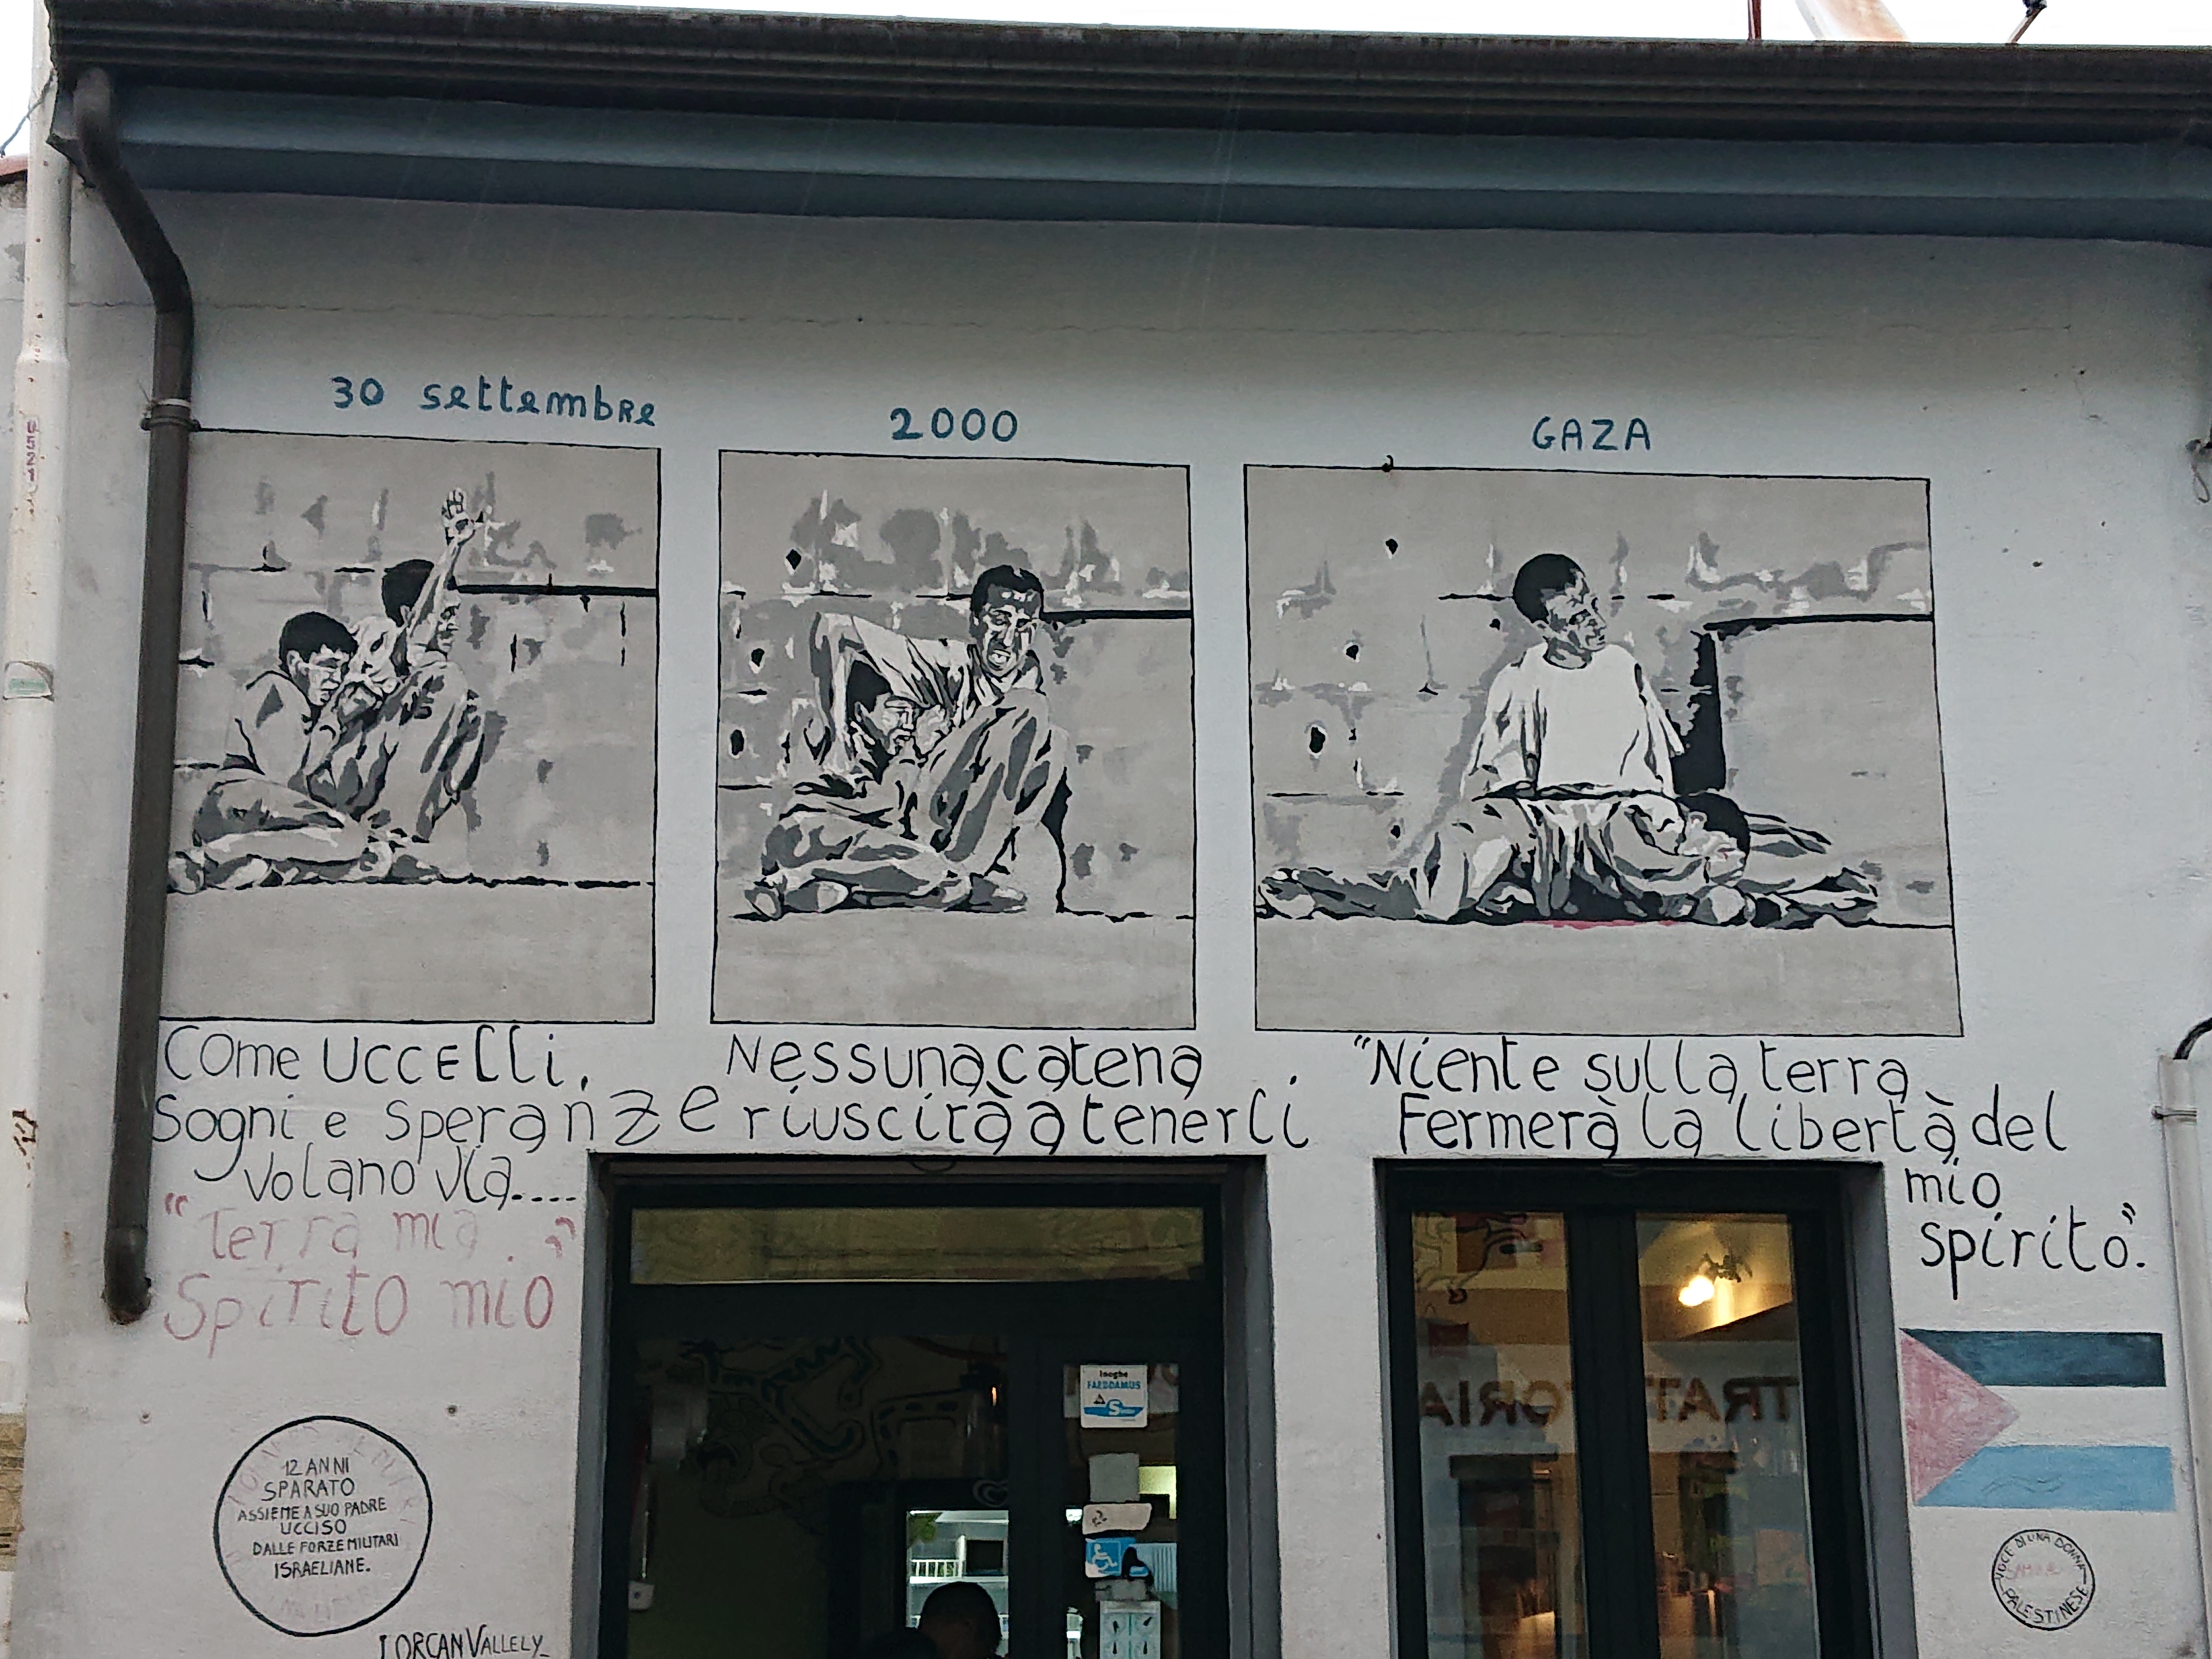 30 settembre
2000
GAZA
Come uccelli,
sogni e speranze
volano via....
"Terra mia."
Spirito mio
Nessuna catena
riuscirà a tenerli
"Niente sulla terra
Fermerà la libertà del
mio
spirito".
12 ANNI
SPARATO
ASSIEME A SUO PADRE
UCCISO
DALLE FORZE MILITARI
ISRAELIANE.
LORCAN VALLELY
Inoghe
FAEDDAMUS
TRATTORIA
VOCE DI UNA DONNA
PALESTINESE
U521